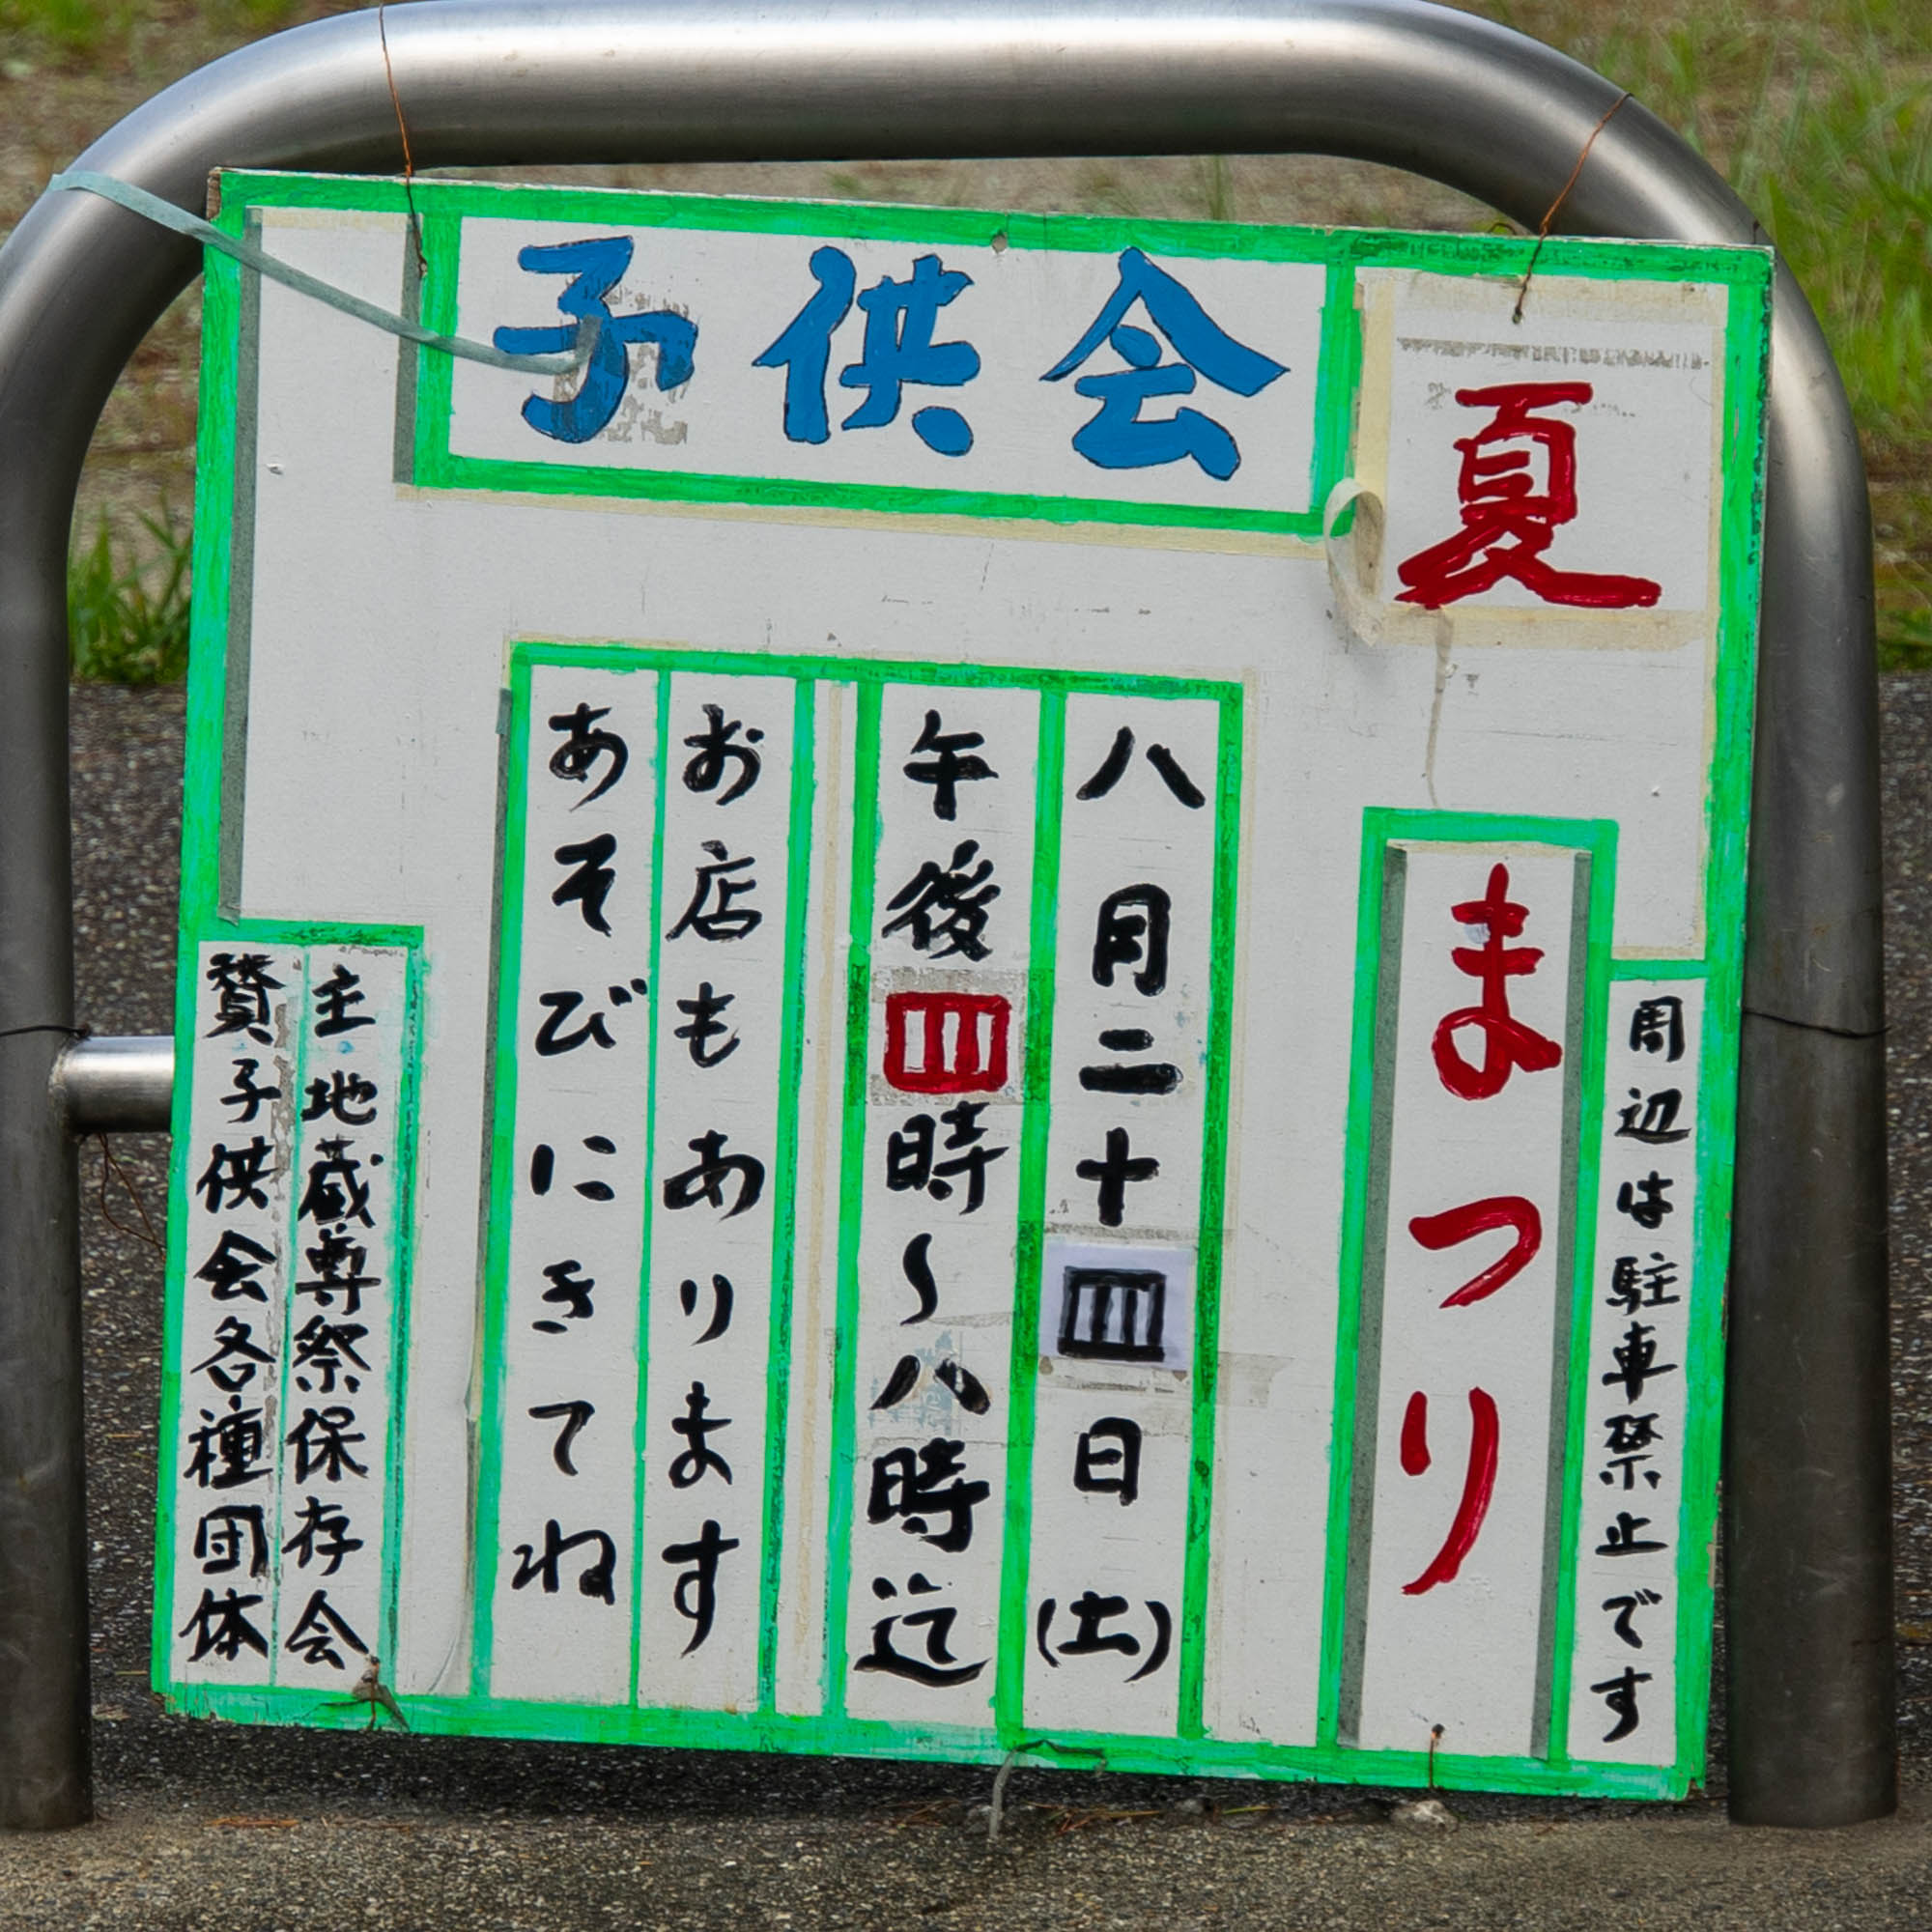 子供会
夏
まつり
周辺は駐車禁止です
八月二十四日(土)
午後四時〜八時迄
お店もあります
あそびにきてね
主地蔵尊祭保存会
賛子供会各種団体